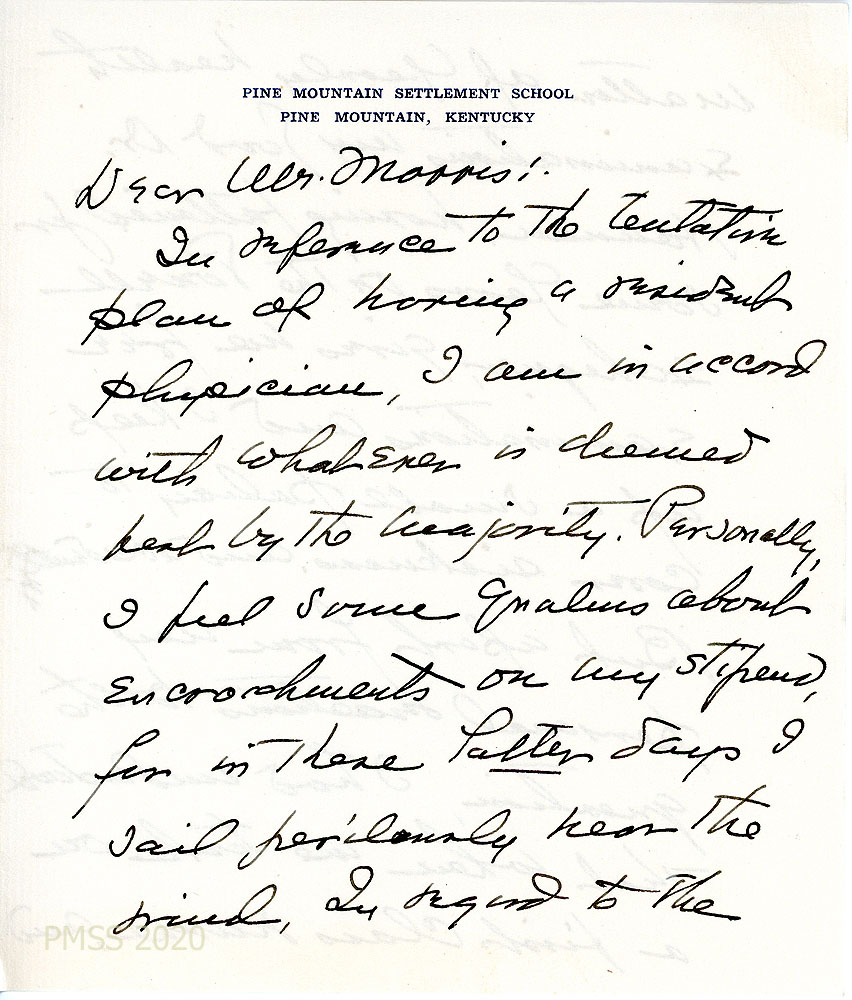 PINE MOUNTAIN SETTLEMENT SCHOOL
PINE MOUNTAIN, KENTUCKY
Dear Mr. Morris:
In reference to the tentative
plan of having a resident
physician, I am in accord
with whatever is deemed
best by the majority. Personally,
I feel some qualms about
encroachments on my stipend,
for in these latter days I
sail perilously near the
wind. In regard to the
PMSS 2020